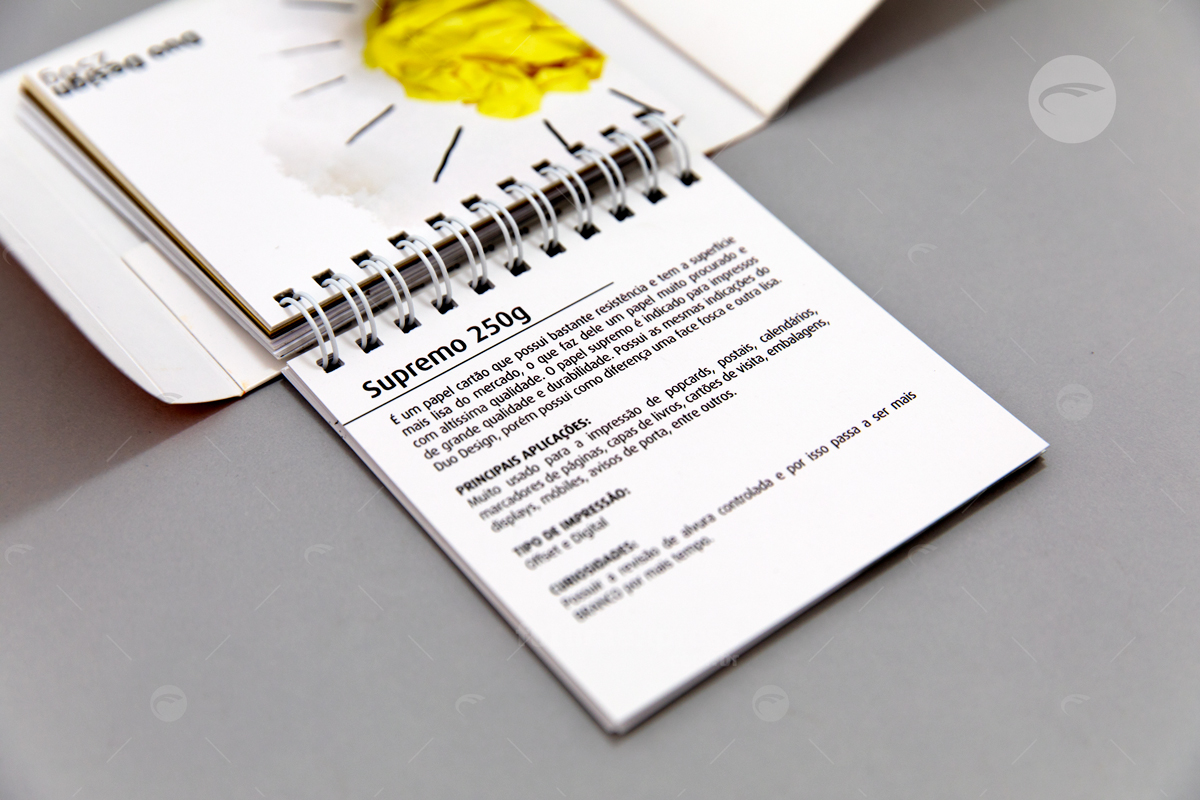 Duo Design
250g
Supremo 250g
É um papel cartão que possui bastante resistência e tem a superfície
mais lisa do mercado, o que faz dele um papel muito procurado e
com altíssima qualidade. O papel supremo é indicado para impressos
de grande qualidade e durabilidade. Possui as mesmas indicações do
Duo Design, porém possui como diferença uma face fosca e outra lisa.
PRINCIPAIS APLICAÇÕES:
Muito usado para a impressão de popcards, postais, calendários,
marcadores de páginas, capas de livros, cartões de visita, embalagens,
displays, móbiles, avisos de porta, entre outros.
TIPO DE IMPRESSÃO:
Offset e Digital
CURIOSIDADES:
Possuir a revisão de alvura controlada e por isso passa a ser mais
BRANCO por mais tempo.